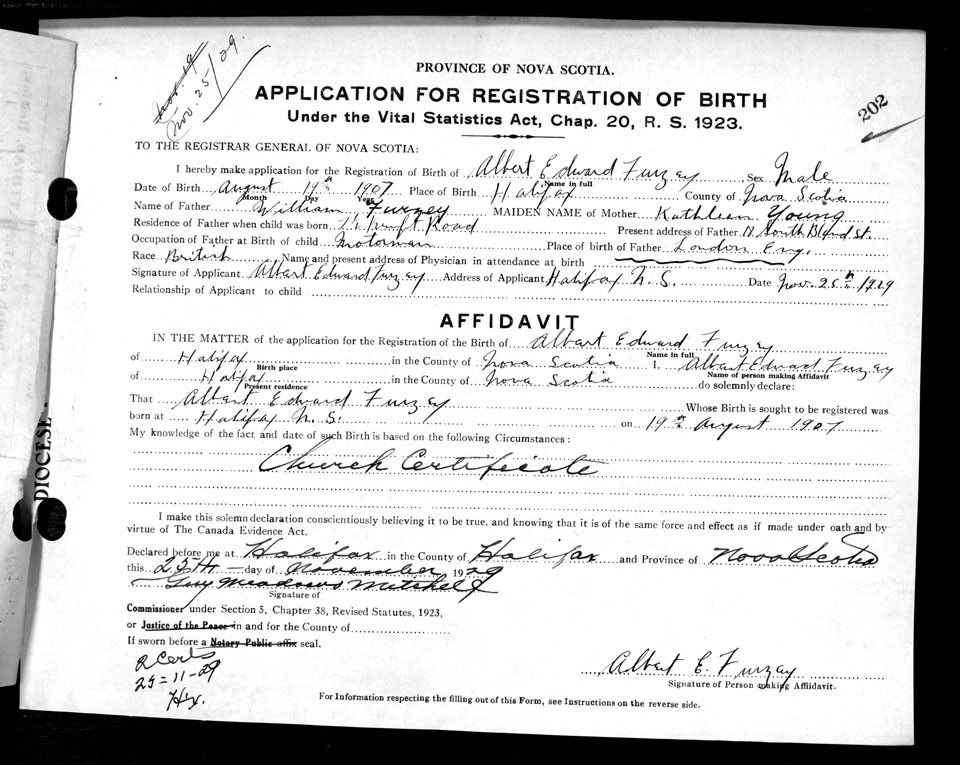 Nov. 19
Nov. 25/29.
PROVINCE OF NOVA SCOTIA.
APPLICATION FOR REGISTRATION OF BIRTH
Under the Vital Statistics Act, Chap. 20, R. S. 1923.
202
TO THE REGISTRAR GENERAL OF NOVA SCOTIA:
I hereby make application for the Registration of Birth of Albert Edward Furzey Sex Male
Name in full
Date of Birth August 19th 1907 Place of Birth Halifax County of Nova Scotia
Month Day Year
Name of Father William Furzey MAIDEN NAME of Mother Kathleen Young
Residence of Father when child was born Road Present address of Father South Bland St.
Occupation of Father at Birth of child Motorman Place of birth of Father London Eng.
Race British Name and present address of Physician in attendance at birth
Signature of Applicant Albert Edward Furzey Address of Applicant Halifax N. S. Date Nov. 25th 1929
Relationship of Applicant to child
AFFIDAVIT
IN THE MATTER of the application for the Registration of the Birth of Albert Edward Furzey
Name in full
of Halifax in the County of Nova Scotia I, Albert Edward Furzey
Birth place Name of person making Affidavit
of Halifax in the County of Nova Scotia do solemnly declare:
Present residence
That Albert Edward Furzey Whose Birth is sought to be registered was
born at Halifax N. S. on 19th August 1907
My knowledge of the fact and date of such Birth is based on the following Circumstances:
Church Certificate
I make this solemn declaration conscientiously believing it to be true, and knowing that it is of the same force and effect as if made under oath and by
virtue of The Canada Evidence Act.
Declared before me at Halifax in the County of Halifax and Province of Nova Scotia
this 25th day of November 1929
Guy Meadows Mitchell
Signature of
Commissioner under Section 5, Chapter 38, Revised Statutes, 1923,
or Justice of the Peace in and for the County of
If sworn before a Notary Public affix seal.
2 Certs
25-11-29
Hx.
Albert E. Furzey
Signature of Person making Affidavit.
For Information respecting the filling out of this Form, see Instructions on the reverse side.
DIOCESE